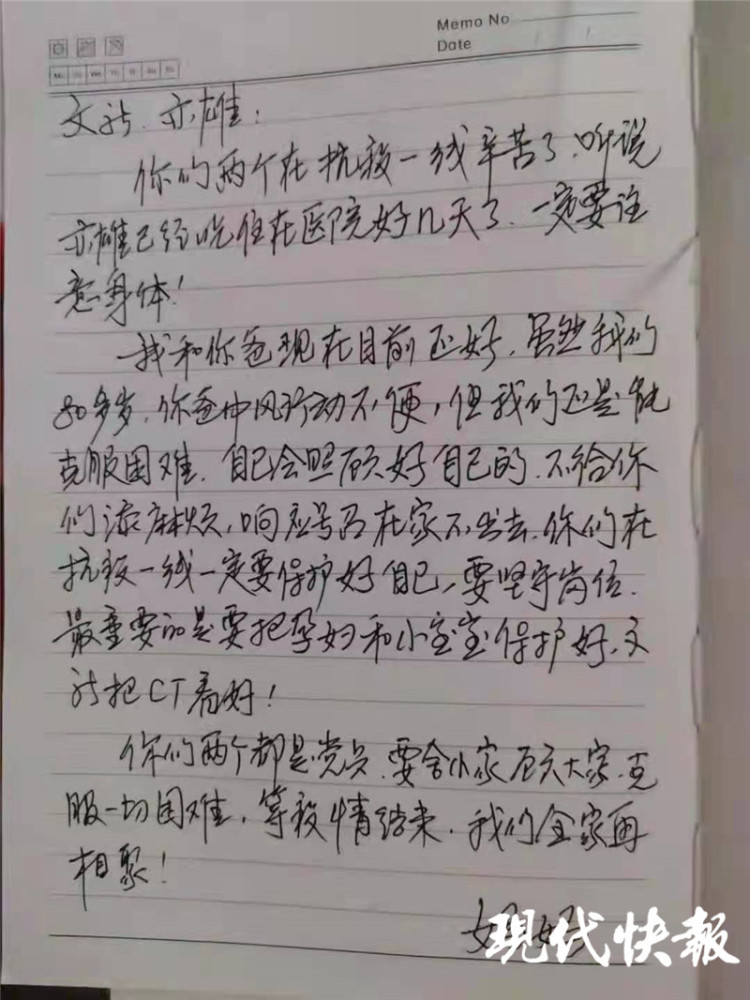 Memo No
Date / /
Mo Tu We Th Fr Sa Su
文新、亦雄：
你们两个在抗疫一线辛苦了，听说
亦雄已经吃住在医院好几天了，一定要注
意身体！
我和你爸现在目前还好，虽然我们
80多岁，你爸中风行动不便，但我们还是能
克服困难，自己会照顾好自己的，不给你
们添麻烦，响应号召在家不出去，你们在
抗疫一线一定要保护好自己，要坚守岗位，
最重要的是要把孕妇和小宝宝保护好，文
新把CT看好！
你们两个都是党员，要舍小家顾大家，克
服一切困难，等疫情结束，我们全家再
相聚！
妈妈
现代快报